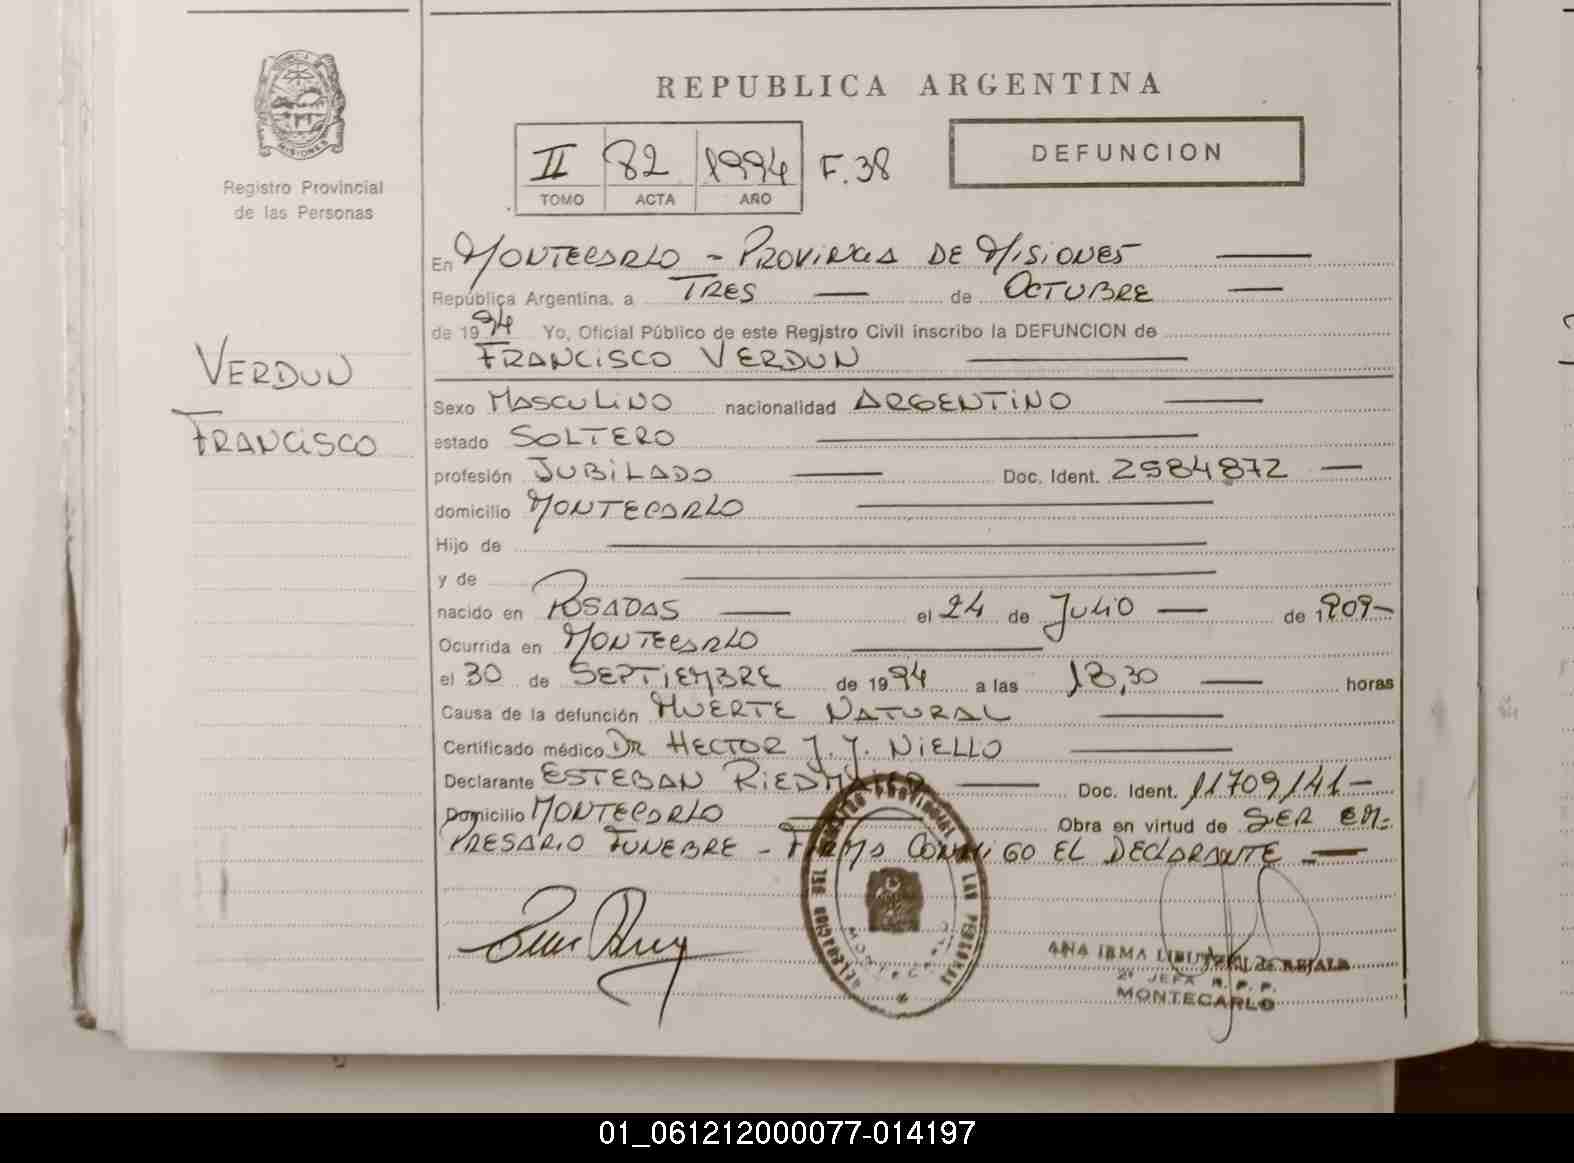 REPUBLICA ARGENTINA
MISIONES
Registro Provincial
de las Personas
II 82 1994 F.38
TOMO ACTA AÑO
DEFUNCION
En MONTECARLO - PROVINCIA DE MISIONES
República Argentina, a TRES de OCTUBRE
de 1994 Yo, Oficial Público de este Registro Civil inscribo la DEFUNCION de
FRANCISCO VERDUN
VERDUN
FRANCISCO
Sexo MASCULINO nacionalidad ARGENTINO
estado SOLTERO
profesión JUBILADO Doc. Ident. 2584872
domicilio MONTECARLO
Hijo de
y de
nacido en POSADAS el 24 de JULIO de 1909-
Ocurrida en MONTECARLO
el 30 de SEPTIEMBRE de 1994 a las 18,30 horas
Causa de la defunción MUERTE NATURAL
Certificado médico DR HECTOR J. J. NIELLO
Declarante ESTEBAN RIEDMAIER Doc. Ident. 11709141-
Domicilio MONTECARLO Obra en virtud de SER EM-
PRESARIO FUNEBRE - FIRMA CONMIGO EL DECLARANTE -
DELEGACION DEL REGISTRO PROVINCIAL DE LAS PERSONAS
MONTECARLO
ANA IRMA DE REJALA
2º JEFA R. P. P.
MONTECARLO
01_061212000077-014197